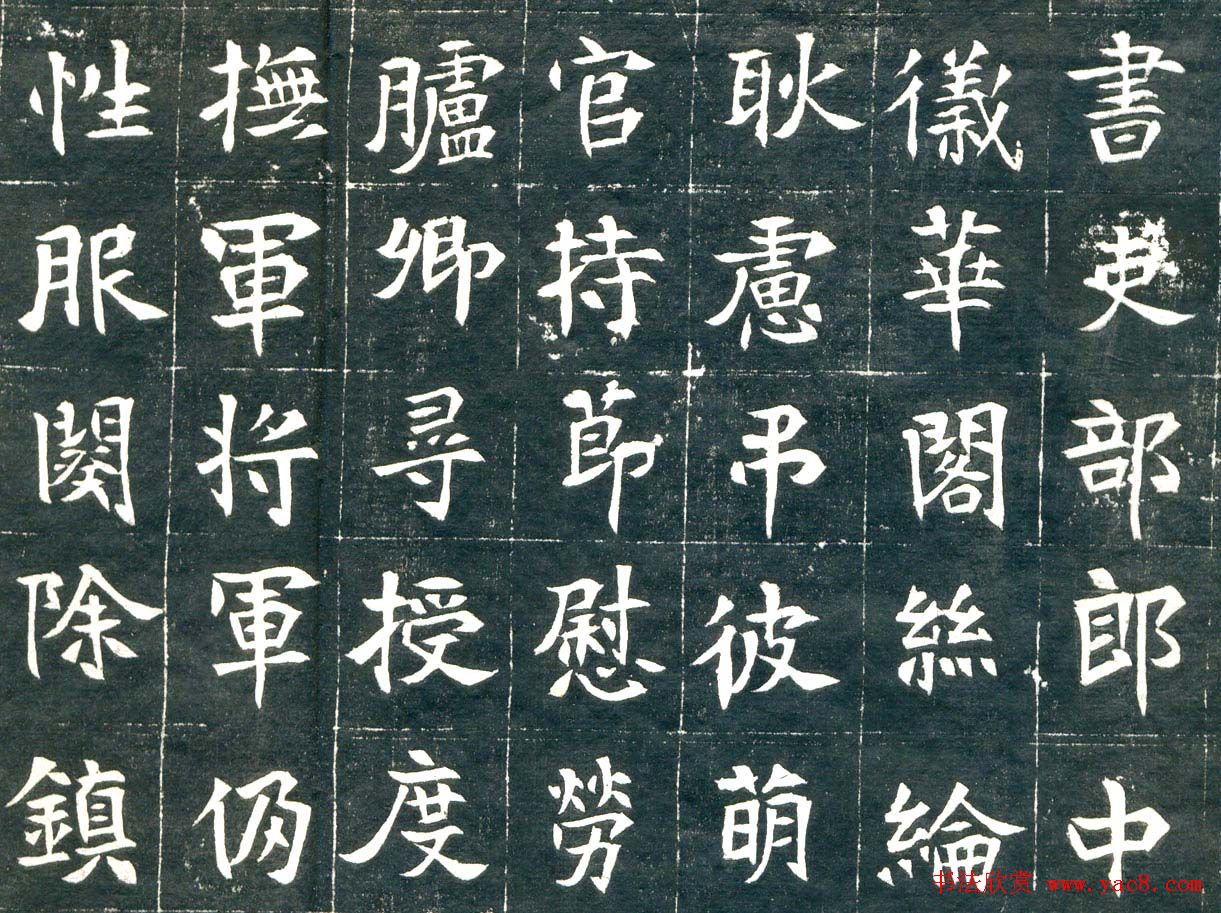 書吏部郎中
儀華閣絲綸
耿慮吊彼萌
官持節慰勞
臚卿尋授度
撫軍將軍
性服闋除鎮
书法欣赏 www.yac8.com